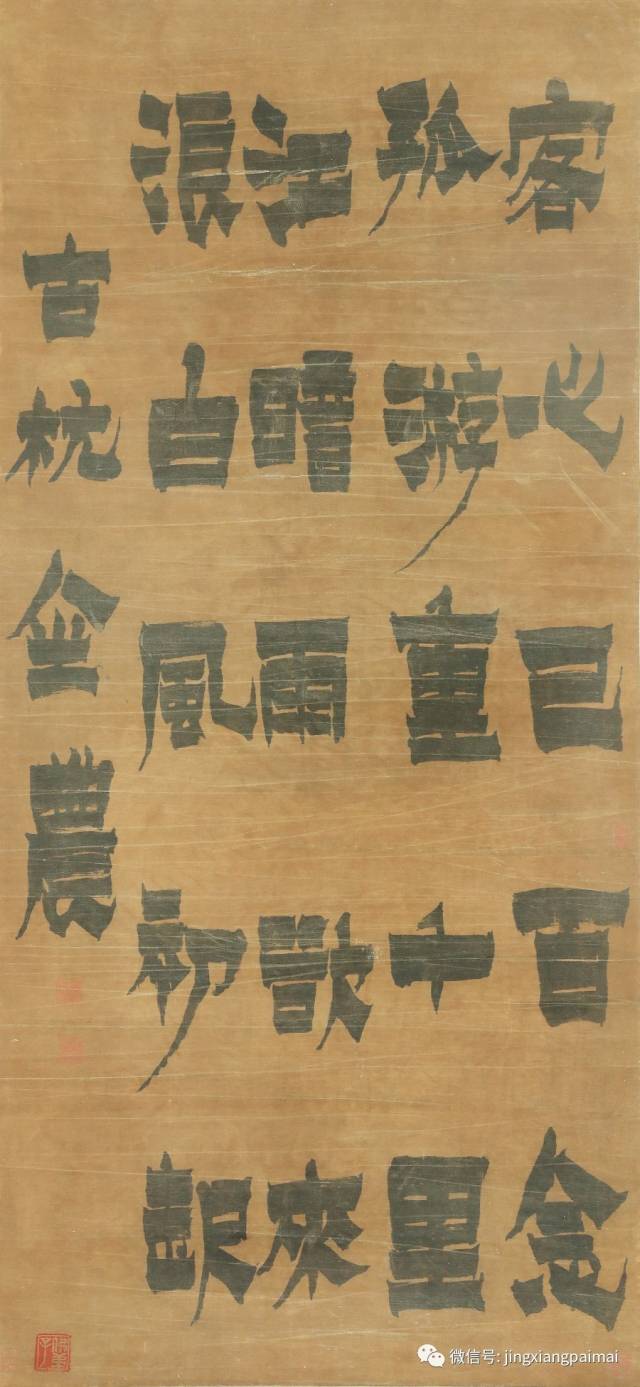 客心已百念
孤游重千里
江暗雨欲來
浪白風初起
古杭金農
微信号: jingxiangpaimai